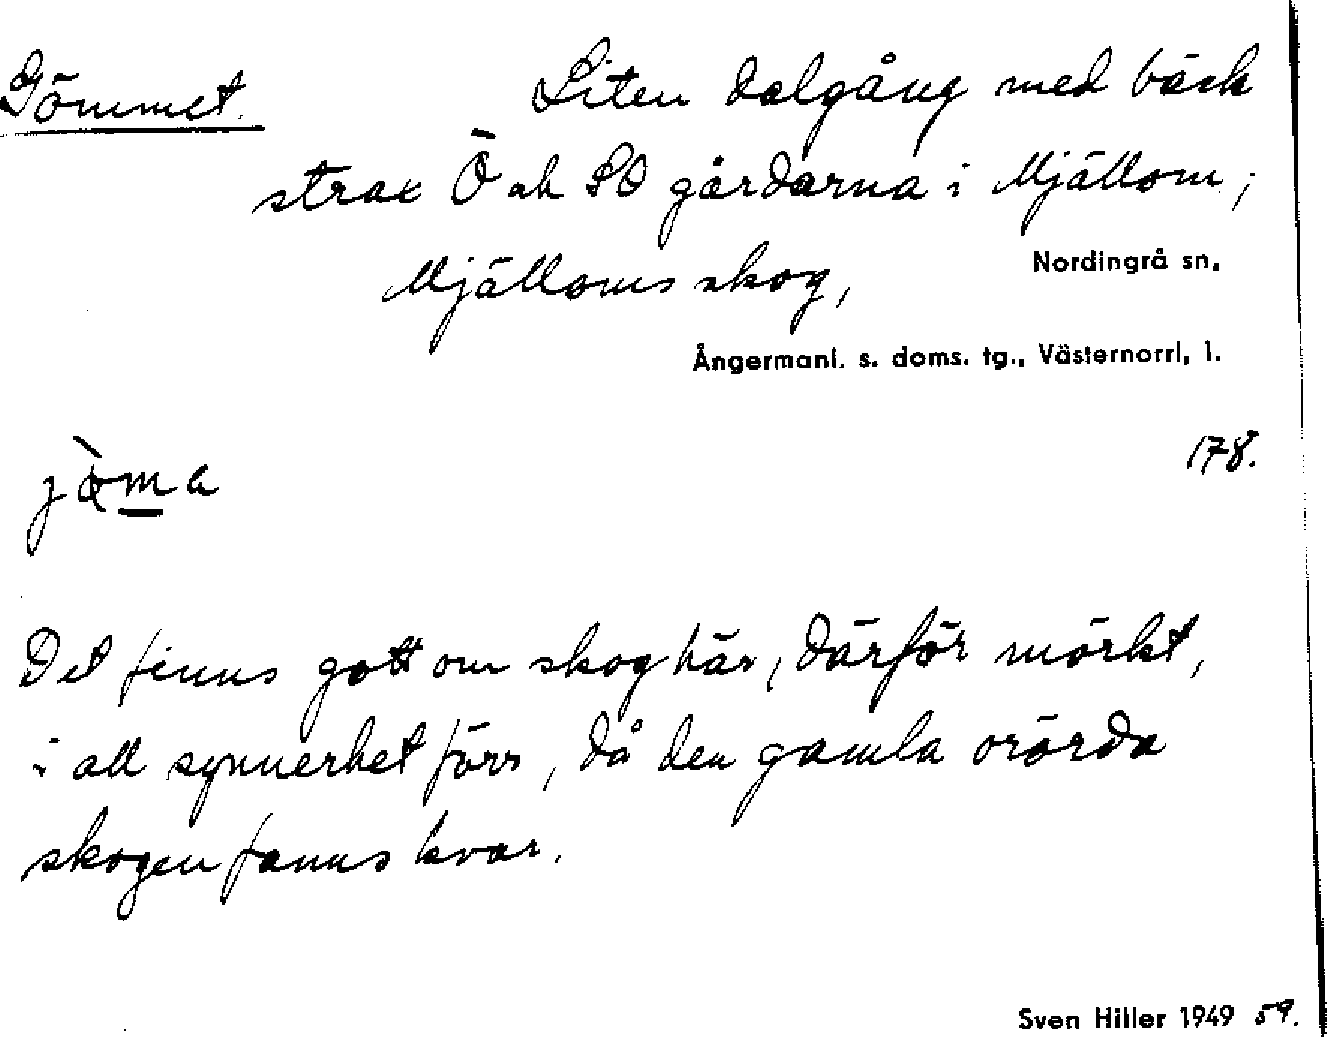 Gömmet. Liten dalgång med bäck
strax Ö och SO gårdarna i Mjällom;
Mjälloms skog, Nordingrå sn,
Ångermanl. s. doms. tg., Västernorrl, l.
178.
jòma
Det finns gott om skog här, därför mörkt,
i all synnerhet förr, då den gamla orörda
skogen fanns kvar.
Sven Hiller 1949 59.